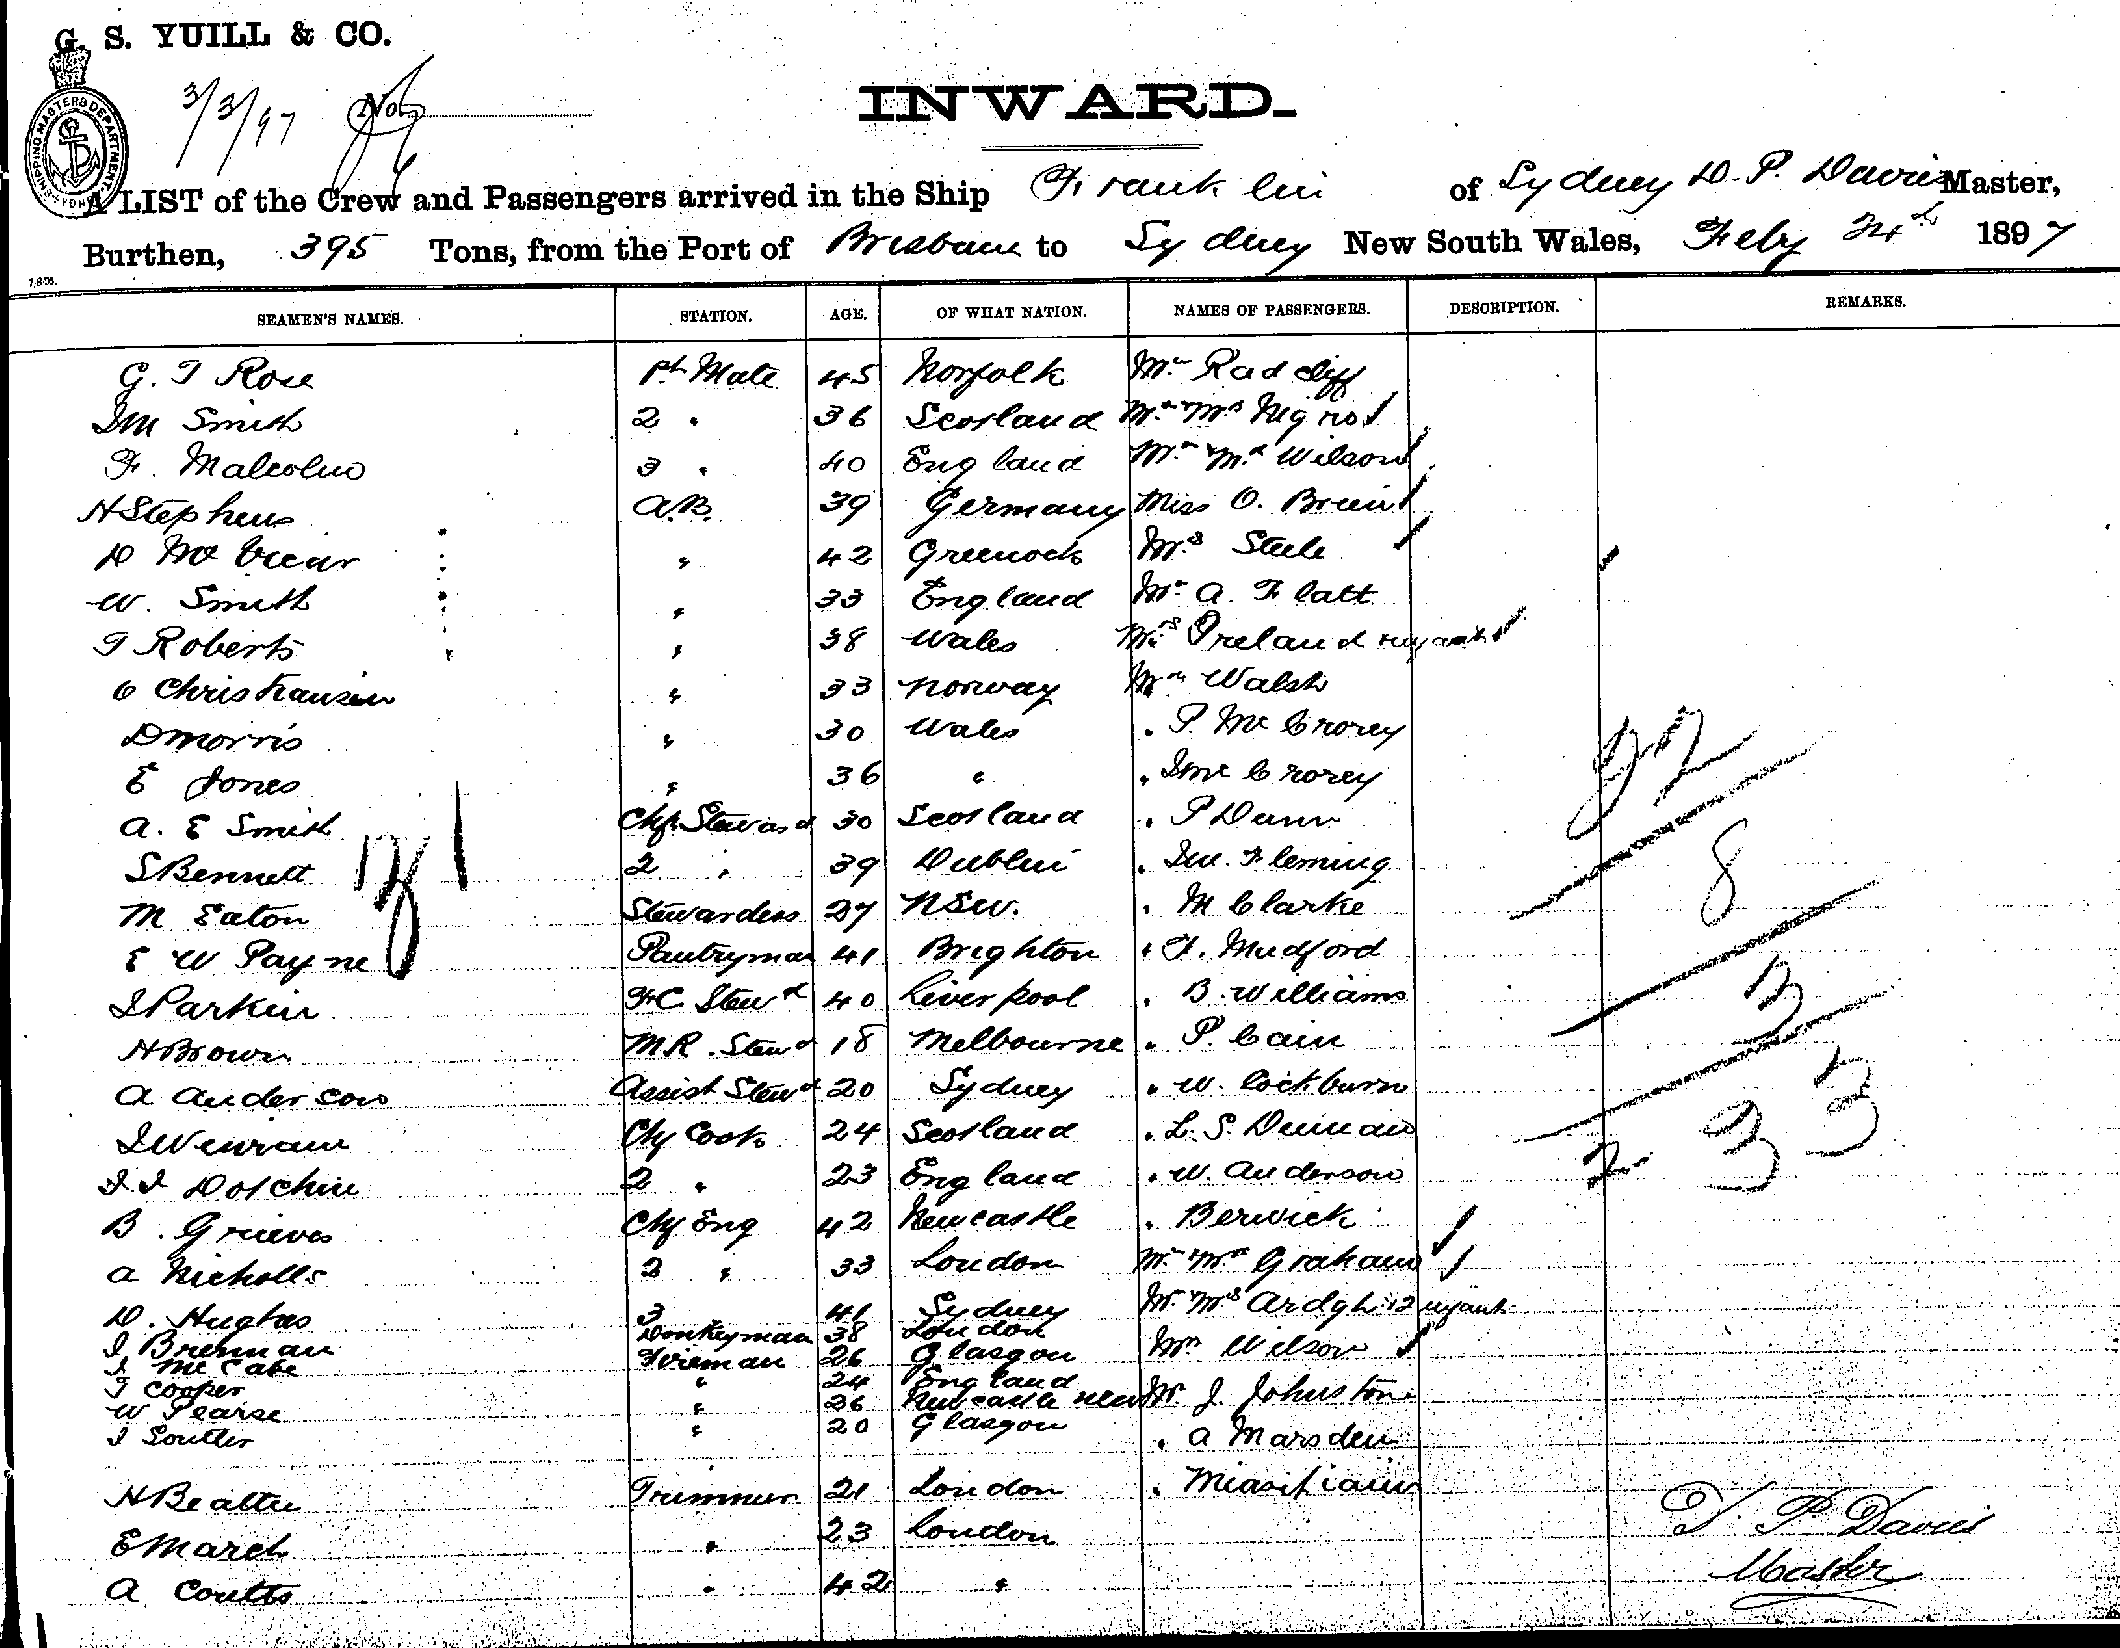 G. S. YUILL & CO.
3/3/97 No.
INWARD.
SHIPPING MASTERS DEPARTMENT SYDNEY
A LIST of the Crew and Passengers arrived in the Ship Franklin of Sydney D. P. Davies Master,
Burthen, 395 Tons, from the Port of Brisbane to Sydney New South Wales, Feby 24th 1897
SEAMEN'S NAMES. STATION. AGE. OF WHAT NATION. NAMES OF PASSENGERS. DESCRIPTION. REMARKS.
G. T Rose 1st Mate 45 Norfolk Mr Radcliff
Smith 2 " 36 Scotland Mr Mrs
F. Malcolm 3 " 40 England Mr Mrs Wilson
H Stephens A.B. 39 Germany Miss O. Brein
D Mc Vicar " 42 Greenock Mrs Steele
W. Smith " 33 England Mr A. Flatt
T Roberts " 38 Wales Mrs Ireland
C Christiansen " 33 Norway Mr Walsh
D Morris " 30 Wales " P. Mc Crorey
E Jones " 36 " " J Mc Crorey
A. E Smith Chf. Steward 30 Scotland " P Dunn
S Bennett 2 " 39 Dublin " Jno. Fleming
M Eaton Stewardess 27 NSW. " M Clarke
E W Payne Pantryman 41 Brighton " F. Mudford
J Parkin F.C. Stewd 40 Liverpool " B. Williams
H Brown M R. Stewd 18 Melbourne " P. Cain
A Anderson Assist Stewd 20 Sydney " W. Cockburn
J Wenram Chf Cook 24 Scotland " L. S. Duncan
J. J Dotchin 2 " 23 England " W. Anderson
B. Grieves Chf Eng 42 Newcastle " Berwick
A Nicholls 2 " 33 London Mr Mrs Graham
D. Hughes 3 " 41 Sydney Mr Mrs Ardgh 2
J Brennan Donkeyman 38 London Mr Wilson
J Mc Cabe Fireman 26 Glasgow
T Cooper " 24 England Mr. J. Johnston
W Pearse " 26 Newcastle NSW
J Souter " 20 Glasgow " A Marsden
H Beattie Trimmer 21 London
E March " 23 London
A Coutts " 42 "
8
3
33
D. P Davies
Master